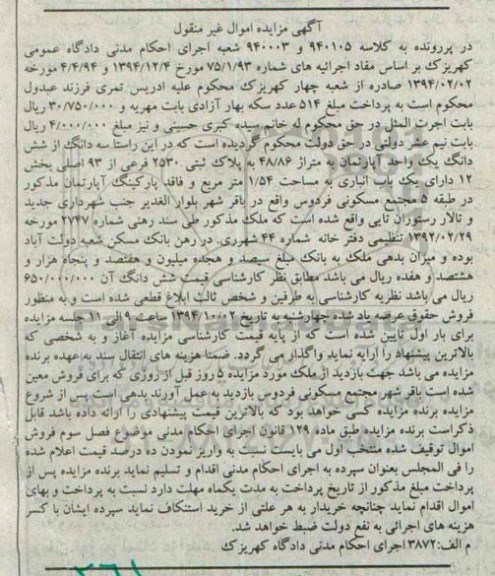 آگهی مزایده اموال غیر منقول
در پررونده به کلاسه ۹۴۰۱۰۵ و ۹۴۰۰۰۳ شعبه اجرای احکام مدنی دادگاه عمومی
کهریزک بر اساس مفاد اجرائیه های شماره ۷۵/۱/۹۳ مورخ ۱۳۹۴/۱۲/۴ و ۴/۴/۹۴ مورخه
۱۳۹۴/۰۲/۰۲ صادره از شعبه چهار کهریزک محکوم علیه ادریس ثمری فرزند عبدول
محکوم است به پرداخت مبلغ ۵۱۴ عدد سکه بهار آزادی بابت مهریه و ۳۰/۷۵۰/۰۰۰ ریال
بابت اجرت المثل در حق محکوم له خانم سیده کبری حسینی و نیز مبلغ ۴/۰۰۰/۰۰۰ ریال
بابت نیم عشر دولتی در حق دولت محکوم گردیده است که در این راستا سه دانگ از شش
دانگ یک واحد آپارتمان به متراژ ۴۸/۸۶ به پلاک ثبتی ۲۵۳۰ فرعی از ۹۳ اصلی بخش
۱۲ دارای یک باب انباری به مساحت ۱/۵۴ متر مربع و فاقد پارکینگ آپارتمان مذکور
در طبقه ۵ مجتمع مسکونی فردوس واقع در باقر شهر بلوار الغدیر جنب شهرداری جدید
و تالار رستوران تایی واقع شده است که ملک مذکور طی سند رهنی شماره ۲۷۴۷ مورخه
۱۳۹۲/۰۲/۲۹ تنظیمی دفتر خانه شماره ۴۴ شهرری. در رهن بانک مسکن شعبه دولت آباد
بوده و میزان بدهی ملک به بانک مبلغ سیصد و هجده میلیون و هفتصد و پنجاه هزار و
هشتصد و هفده ریال می باشد مطابق نظر کارشناسی قیمت شش دانگ آن ۶۵۰/۰۰۰/۰۰۰
ریال می‌باشد نظریه کارشناسی به طرفین و شخص ثالث ابلاغ قطعی شده است و به منظور
فروش حقوق عرصه یاد شده چهارشنبه به تاریخ ۱۳۹۴/۱۰/۰۲ ساعت ۹ الی ۱۱ جلسه مزایده
برای بار اول تایین شده است که از پایه قیمت کارشناسی مزایده آغاز و به شخصی که
بالاترین پیشنهاد را ارایه نماید واگذار می گردد. ضمنا هزینه های انتقال سند به عهده برنده
مزایده می باشد جهت بازدید از ملک مورد مزایده ۵ روز قبل از روزی که برای فروش معین
شده است باقر شهر مجتمع مسکونی فردوس بازدید به عمل آورند بدهی است پس از شروع
مزایده برنده مزایده کسی خواهد بود که بالاترین قیمت پیشنهادی را ارائه داده باشد قابل
ذکر است برنده مزایده طبق ماده ۱۲۹ قانون اجرای احکام مدنی موضوع فصل سوم فروش
اموال توقیف شده منتخب اول می بایست نسبت به واریز نمودن ده درصد قیمت اعلام شده
را فی المجلس بعنوان سپرده به اجرای احکام مدنی اقدام و تسلیم نماید برنده مزایده پس از
پرداخت مبلغ مذکور از تاریخ پرداخت به مدت یکماه مهلت دارد نسبت به پرداخت و بهای
اموال اقدام نماید چنانچه خریدار به هر علتی از خرید استنکاف نماید سپرده ایشان با کسر
هزینه های اجرائی به نفع دولت ضبط خواهد شد.
م الف:۳۸۷۲ اجرای احکام مدنی دادگاه کهریزک
۲۶۱